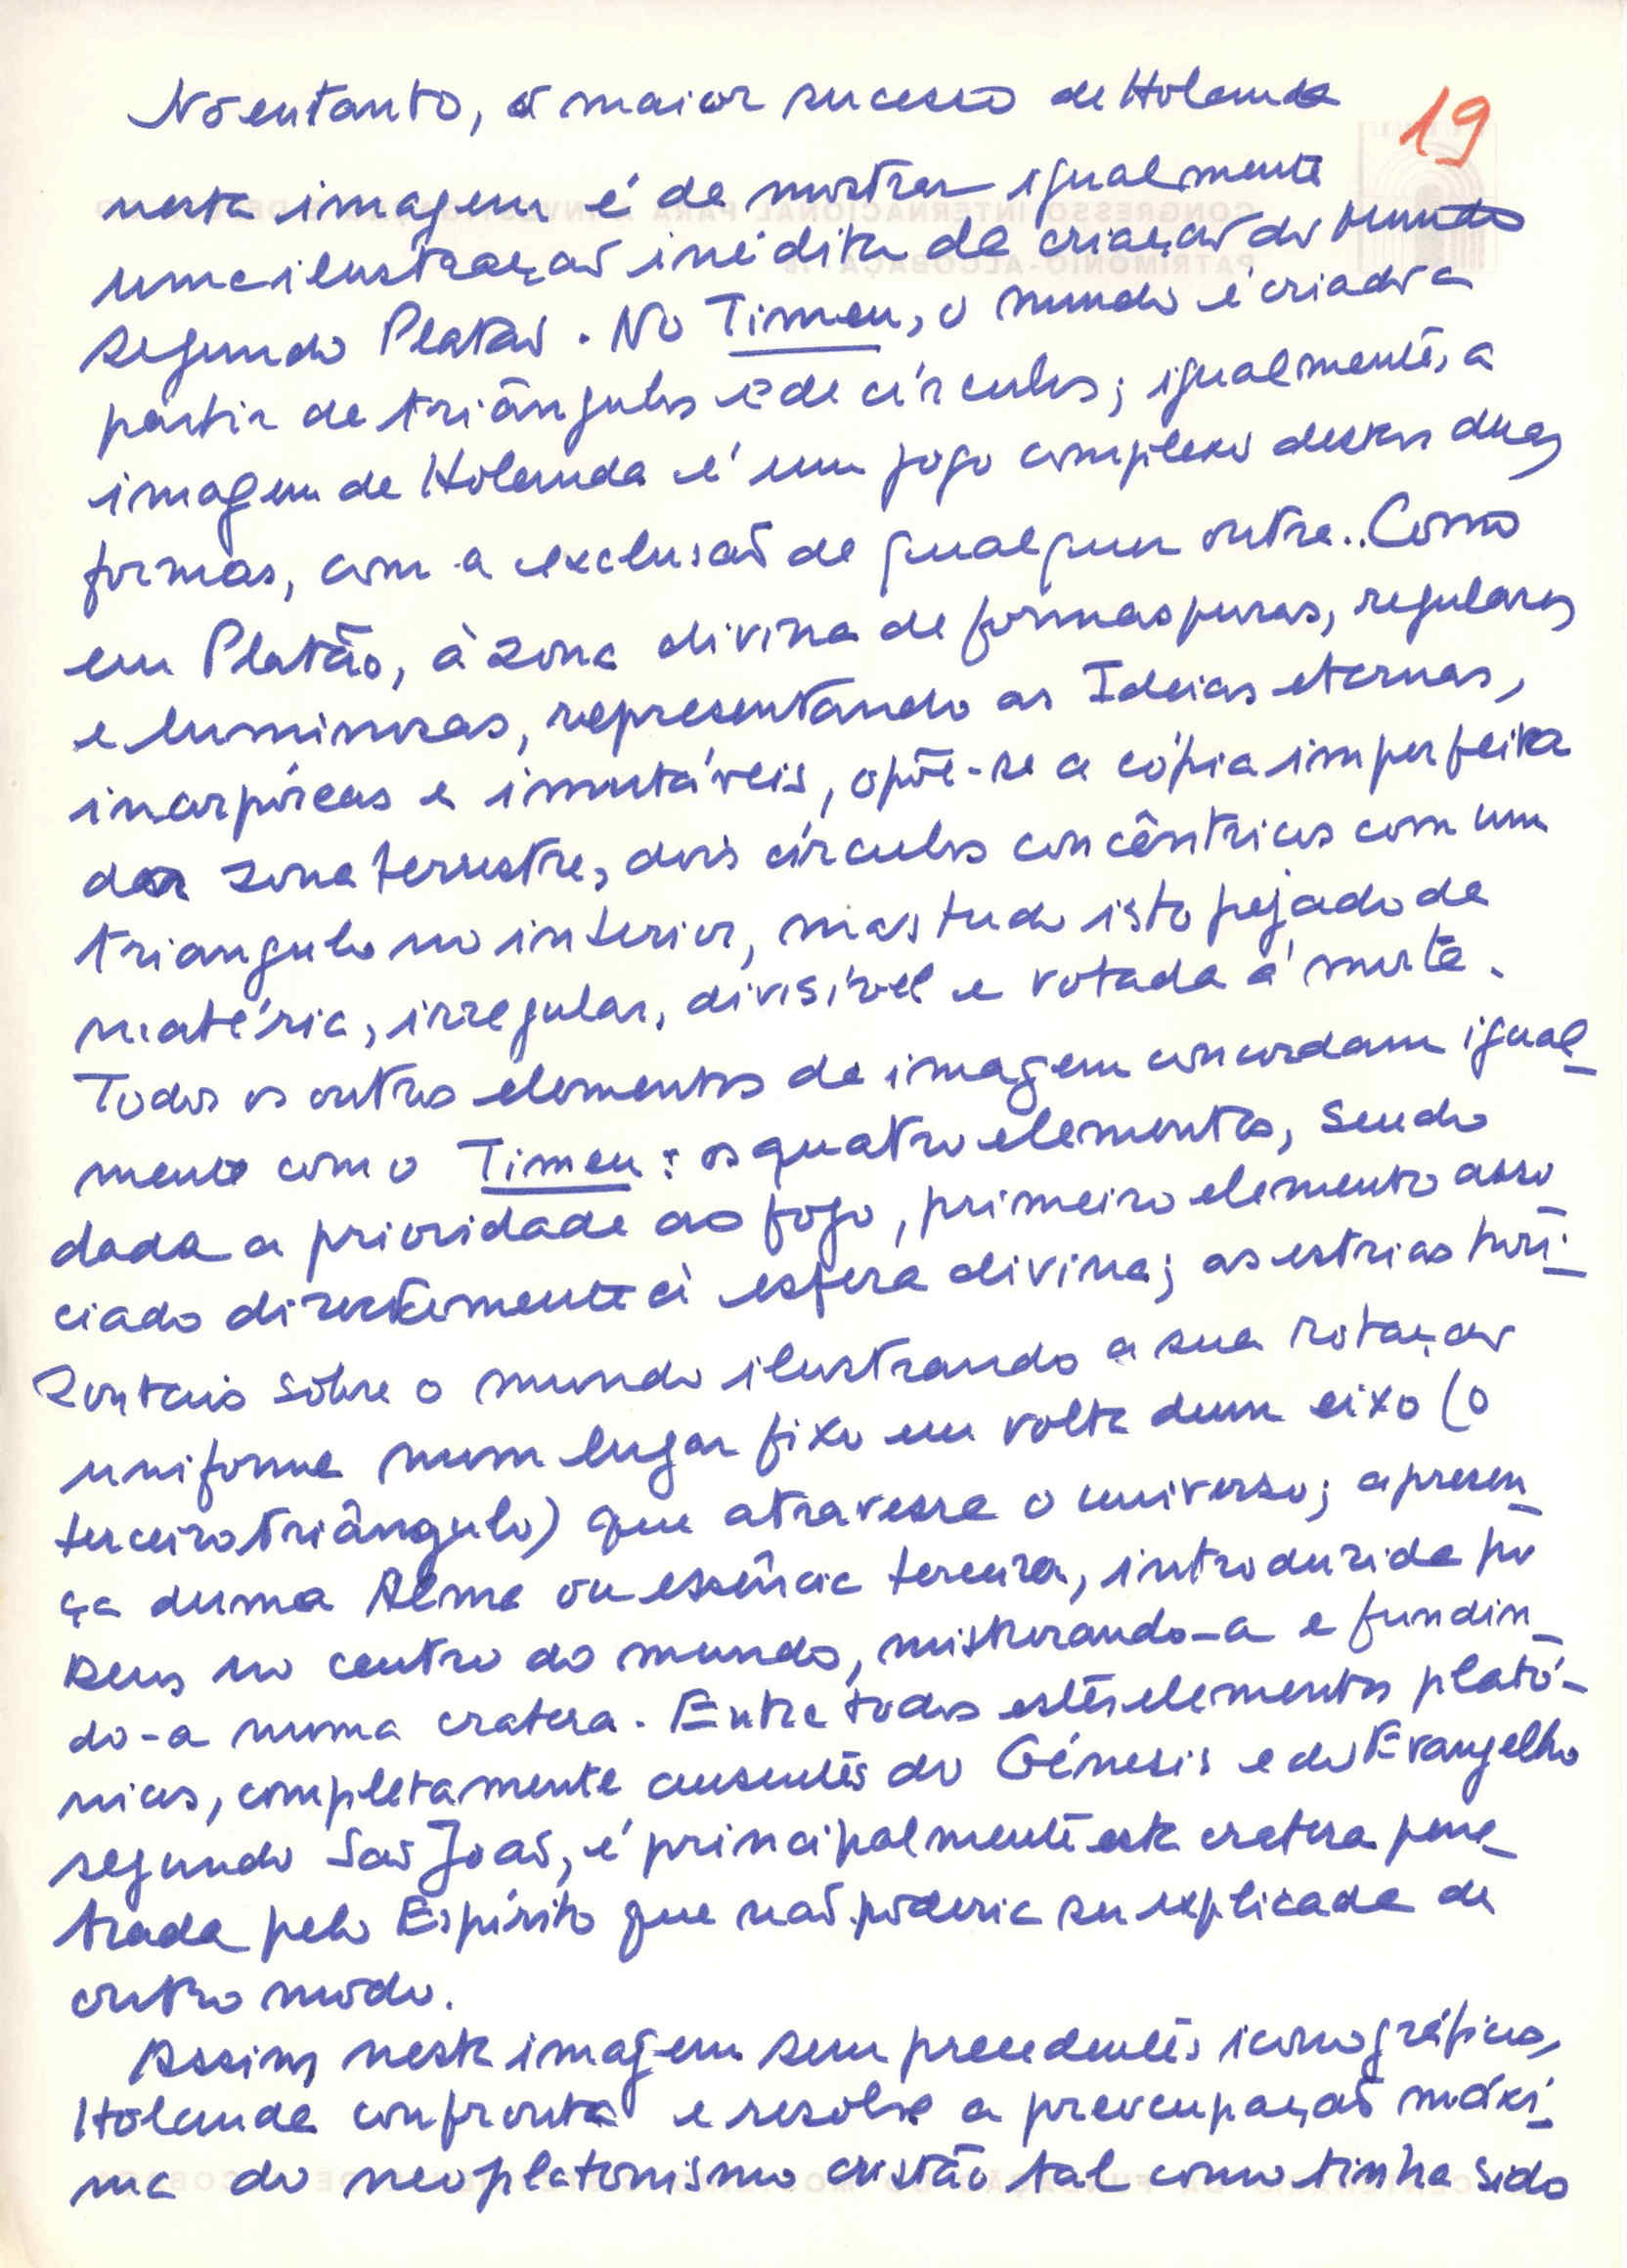 19
No entanto, o maior sucesso de Holanda
nesta imagem é de mostrar igualmente
uma ilustração inédita da criação do Mundo
segundo Platão. No Timeu, o mundo é criado a
partir de triângulos e de círculos; igualmente, a
imagem de Holanda é um jogo complexo destas duas
formas, com a exclusão de qualquer outra.. Como
em Platão, à zona divina de formas puras, regulares
e luminosas, representando as Ideias eternas,
incorpóreas e imutáveis, opõe-se a cópia imperfeita
da zona terrestre, dois círculos concêntricos com um
triangulo no interior, mas tudo isto pejado de
matéria, irregular, divisível e votada à morte.
Todos os outros elementos da imagem concordam igual-
mente com o Timeu: os quatro elementos, sendo
dada a prioridade ao fogo, primeiro elemento asso
ciado directamente à esfera divina; as estrias hori-
zontais sobre o mundo ilustrando a sua rotação
uniforme num lugar fixo em volta dum eixo (o
terceiro triângulo) que atravessa o universo; a presen-
ça duma Alma ou essência terceira, introduzida por
Deus no centro do mundo, misturando-a e fundin-
do-a numa cratera. Entre todos estes elementos plató-
nicos, completamente ausentes do Génesis e do Evangelho
segundo São João, é principalmente esta cratera pene-
trada pelo Espírito que não poderia ser explicada de
outro modo.
Assim, nesta imagem sem precedentes iconográficos,
Holanda confronta e resolve a preocupação máxi-
ma do neoplatonismo cristão tal como tinha sido